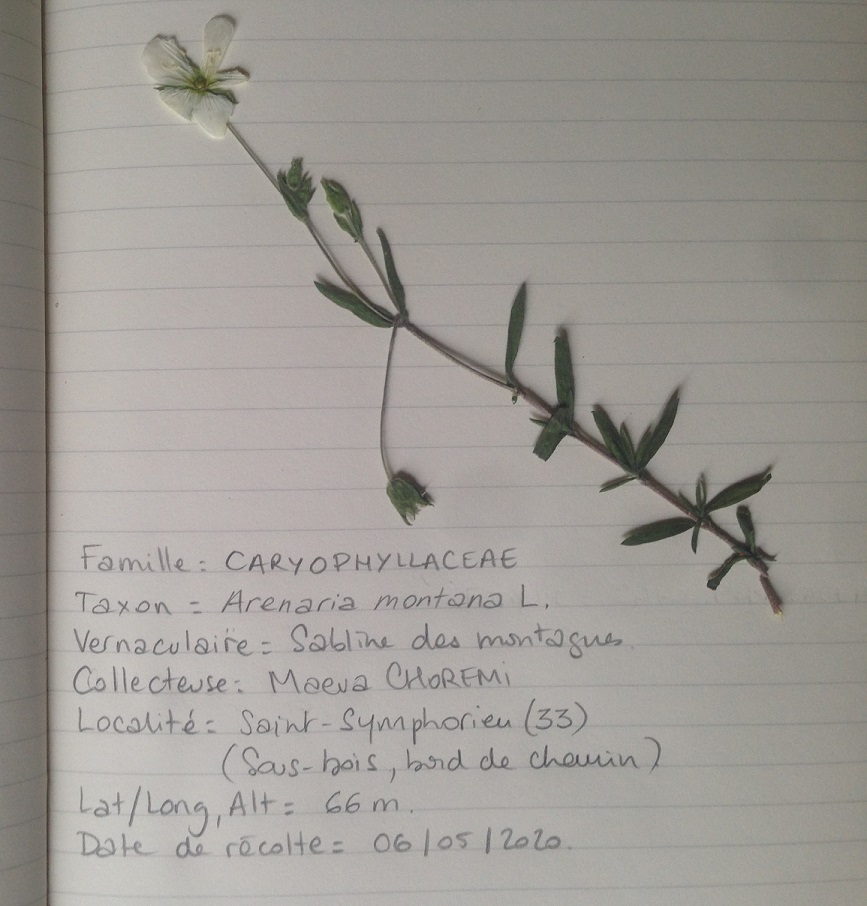 Famille : CARYOPHYLLACEAE
Taxon = Arenaria montana L.
Vernaculaire = Sabline des montagnes.
Collecteuse : Maeva CHOREMI
Localité = Saint-Symphorien (33)
(Sous-bois, bord de chemin)
Lat/Long, Alt = 66 m.
Date de récolte = 06/05/2020.